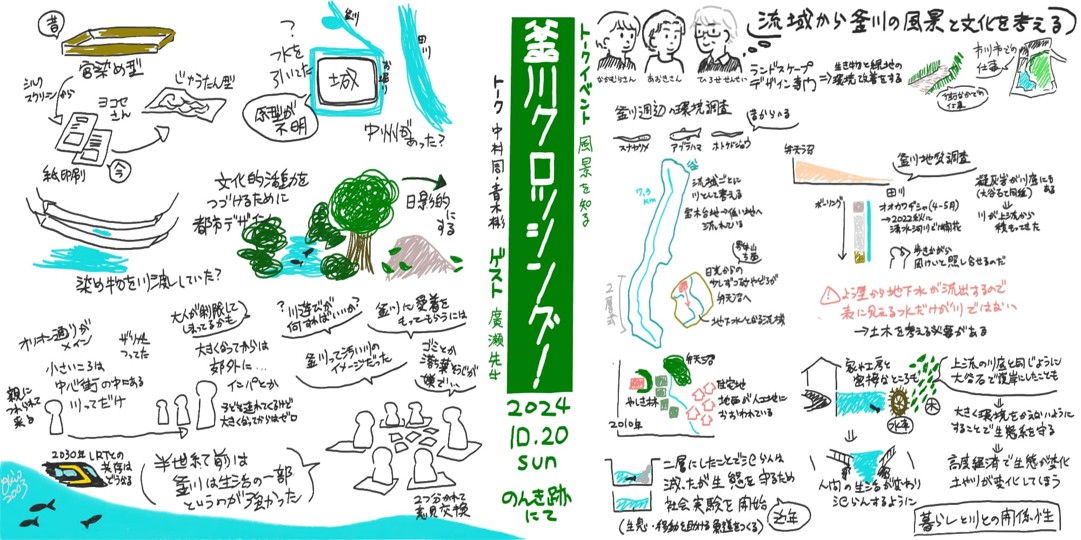 昔
宮染め型
シルク
スクリーンから
ヨコセ
さん
じゅうたん型
紙印刷
今
?
水を
引いてた
釜川
お堀
城
田川
原型が
不明
中州が
あった?
文化的治道が
つづけるために
都市デザイン
日影的
にする
染め物を川流していた?
オリオン通りが
メイン
大人が制限して
しまってるかも
?川遊びが
何すればいいか?
釜川に愛着を
もってもらうには
ザリガニ
つってた
小さいころは
中心街の中にある
川ってだけ
大きくなってからは
郊外に…
インパとか
釜川って汚い川の
イメージだった
ゴミとか
落ち葉そうじが
嫌で…
親に
つれられて
来る
子ども連れてくるけど
大きくなってからはゼロ
2030年LRTとの
共存は
どうなる
半世紀前は
釜川は生活の一部
というのが強かった
2つ分かれて
意見交換
釜川クロッシング!
トークイベント 風景を知る
トーク 中村周・青木彬
ゲスト 廣瀬先生
2024
10.20
sun
のんき跡
にて
流域から釜川の風景と文化を考える
なかむらさん
あおきさん
ひろせせんせい
ランドスケープ
デザイン専門
⇒生き物と緑地の
環境改善をする
市川市での
仕事
釜川周辺の環境調査
まだいる
スナヤツメ
アブラハヤ
ホトケドジョウ
7.3
km
流域ごとに
川として考える
宝木台地→低い地へ
流れている
2層式
日光からの
少しずつ砂やどろが
弁天沼へ
地下水などが流域
弁天沼
釜川地質調査
田川
ボーリング
凝灰岩が川底にも
ある
(大谷石と同種)
↓
川が上流から
積もってきた
オオカワヂシャ(4-5月)
→2022秋に
清水河川で開花
歩きながら
聞いて照し合せるのだ
⚠より壁から地下水が流出するので
表に見える水だけが川ではない
→土木を考える必要がある
弁天沼
やしき林
住宅地
地面が人工地に
おおわれている
2010年
家や工房と
密接なところも
水車
木
上流の川底と同じように
大谷石で護岸したことも
↓
大きく環境をかえないように
することで生態系を守る
⇓
高度経済で生態が変化
土やりが変化してしまう
人間の生活が変わり
氾らんするように
二層にしたことで氾らんは
減ったが生態を守るため
社会実験を開始
(生息・移動を助ける魚道をつくる)
近年
暮らしと川との関係性